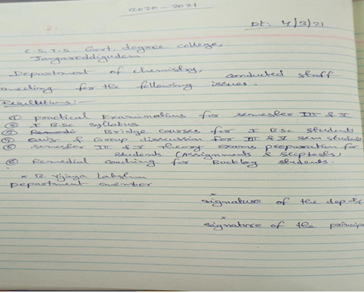 2020-2021
Dt: 4/3/21
C.S.T.S. Govt. degree college,
Jangareddigudem
Department of chemistry, conducted staff
meeting for the following issues.
Resolutions:-
① practical Examinations for semester III & I
② I BSc syllabus
③ Bridge courses for I BSc students
④ Quiz & Group discussion for III & I sem students
⑤ semester III & I Theory exams preparation for
students (Assignments &
⑥ Remedial coaching for Backlog students.
Vijaya Lakshmi
Department member
signature of the dept
signature of the princip